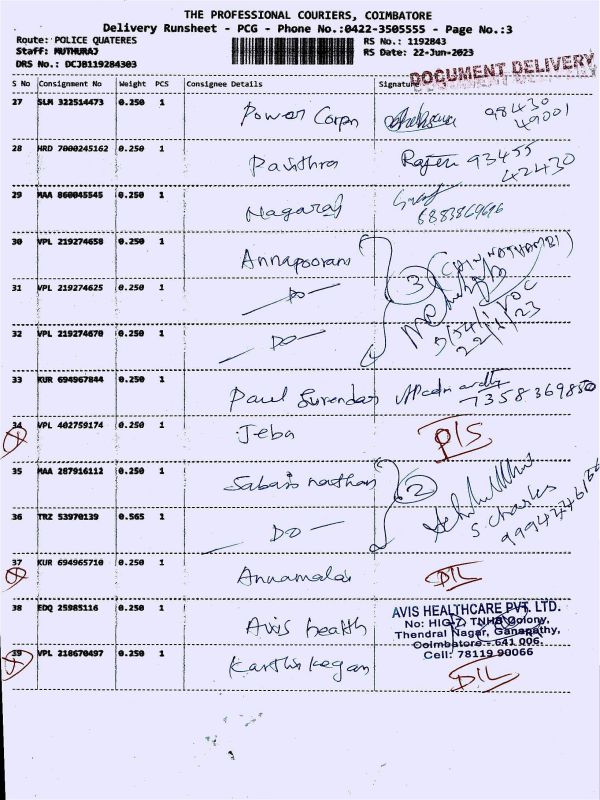 THE PROFESSIONAL COURIERS, COIMBATORE
Delivery Runsheet - PCG - Phone No.:0422-3505555 - Page No.:3
Route: POLICE QUATERES
RS No.: 1192843
Staff: MUTHURAJ
RS Date: 22-Jun-2023
DRS No.: DCJB119284303
DOCUMENT DELIVERY
S No Consignment No Weight PCS Consignee Details Signature
27 SLM 322514473 0.250 1 Power Corpn 98430
49001
28 HRD 7000245162 0.250 1 Pavithra 93455
42430
29 MAA 860045545 0.250 1 Nagaraj
6883869696
30 VPL 219274658 0.250 1 Annapoorani
31 VPL 219274625 0.250 1 — Do — 3
32 VPL 219274670 0.250 1 — Do —
33 KUR 694967844 0.250 1 Paul Surendar
34 VPL 402759174 0.250 1 Jeba
35 MAA 287916112 0.250 1 2
36 TRZ 53970139 0.565 1 — Do — S. Charles
37 KUR 694965710 0.250 1 Annamalai D/L
38 EDQ 25985116 0.250 1 Avis health
AVIS HEALTHCARE PVT. LTD.
No: HIG-7, TNHB Colony,
Thendral Nagar, Ganapathy,
Coimbatore - 641 006.
Cell: 78119 90066
39 VPL 218670497 0.250 1 Karthikeyan D/L